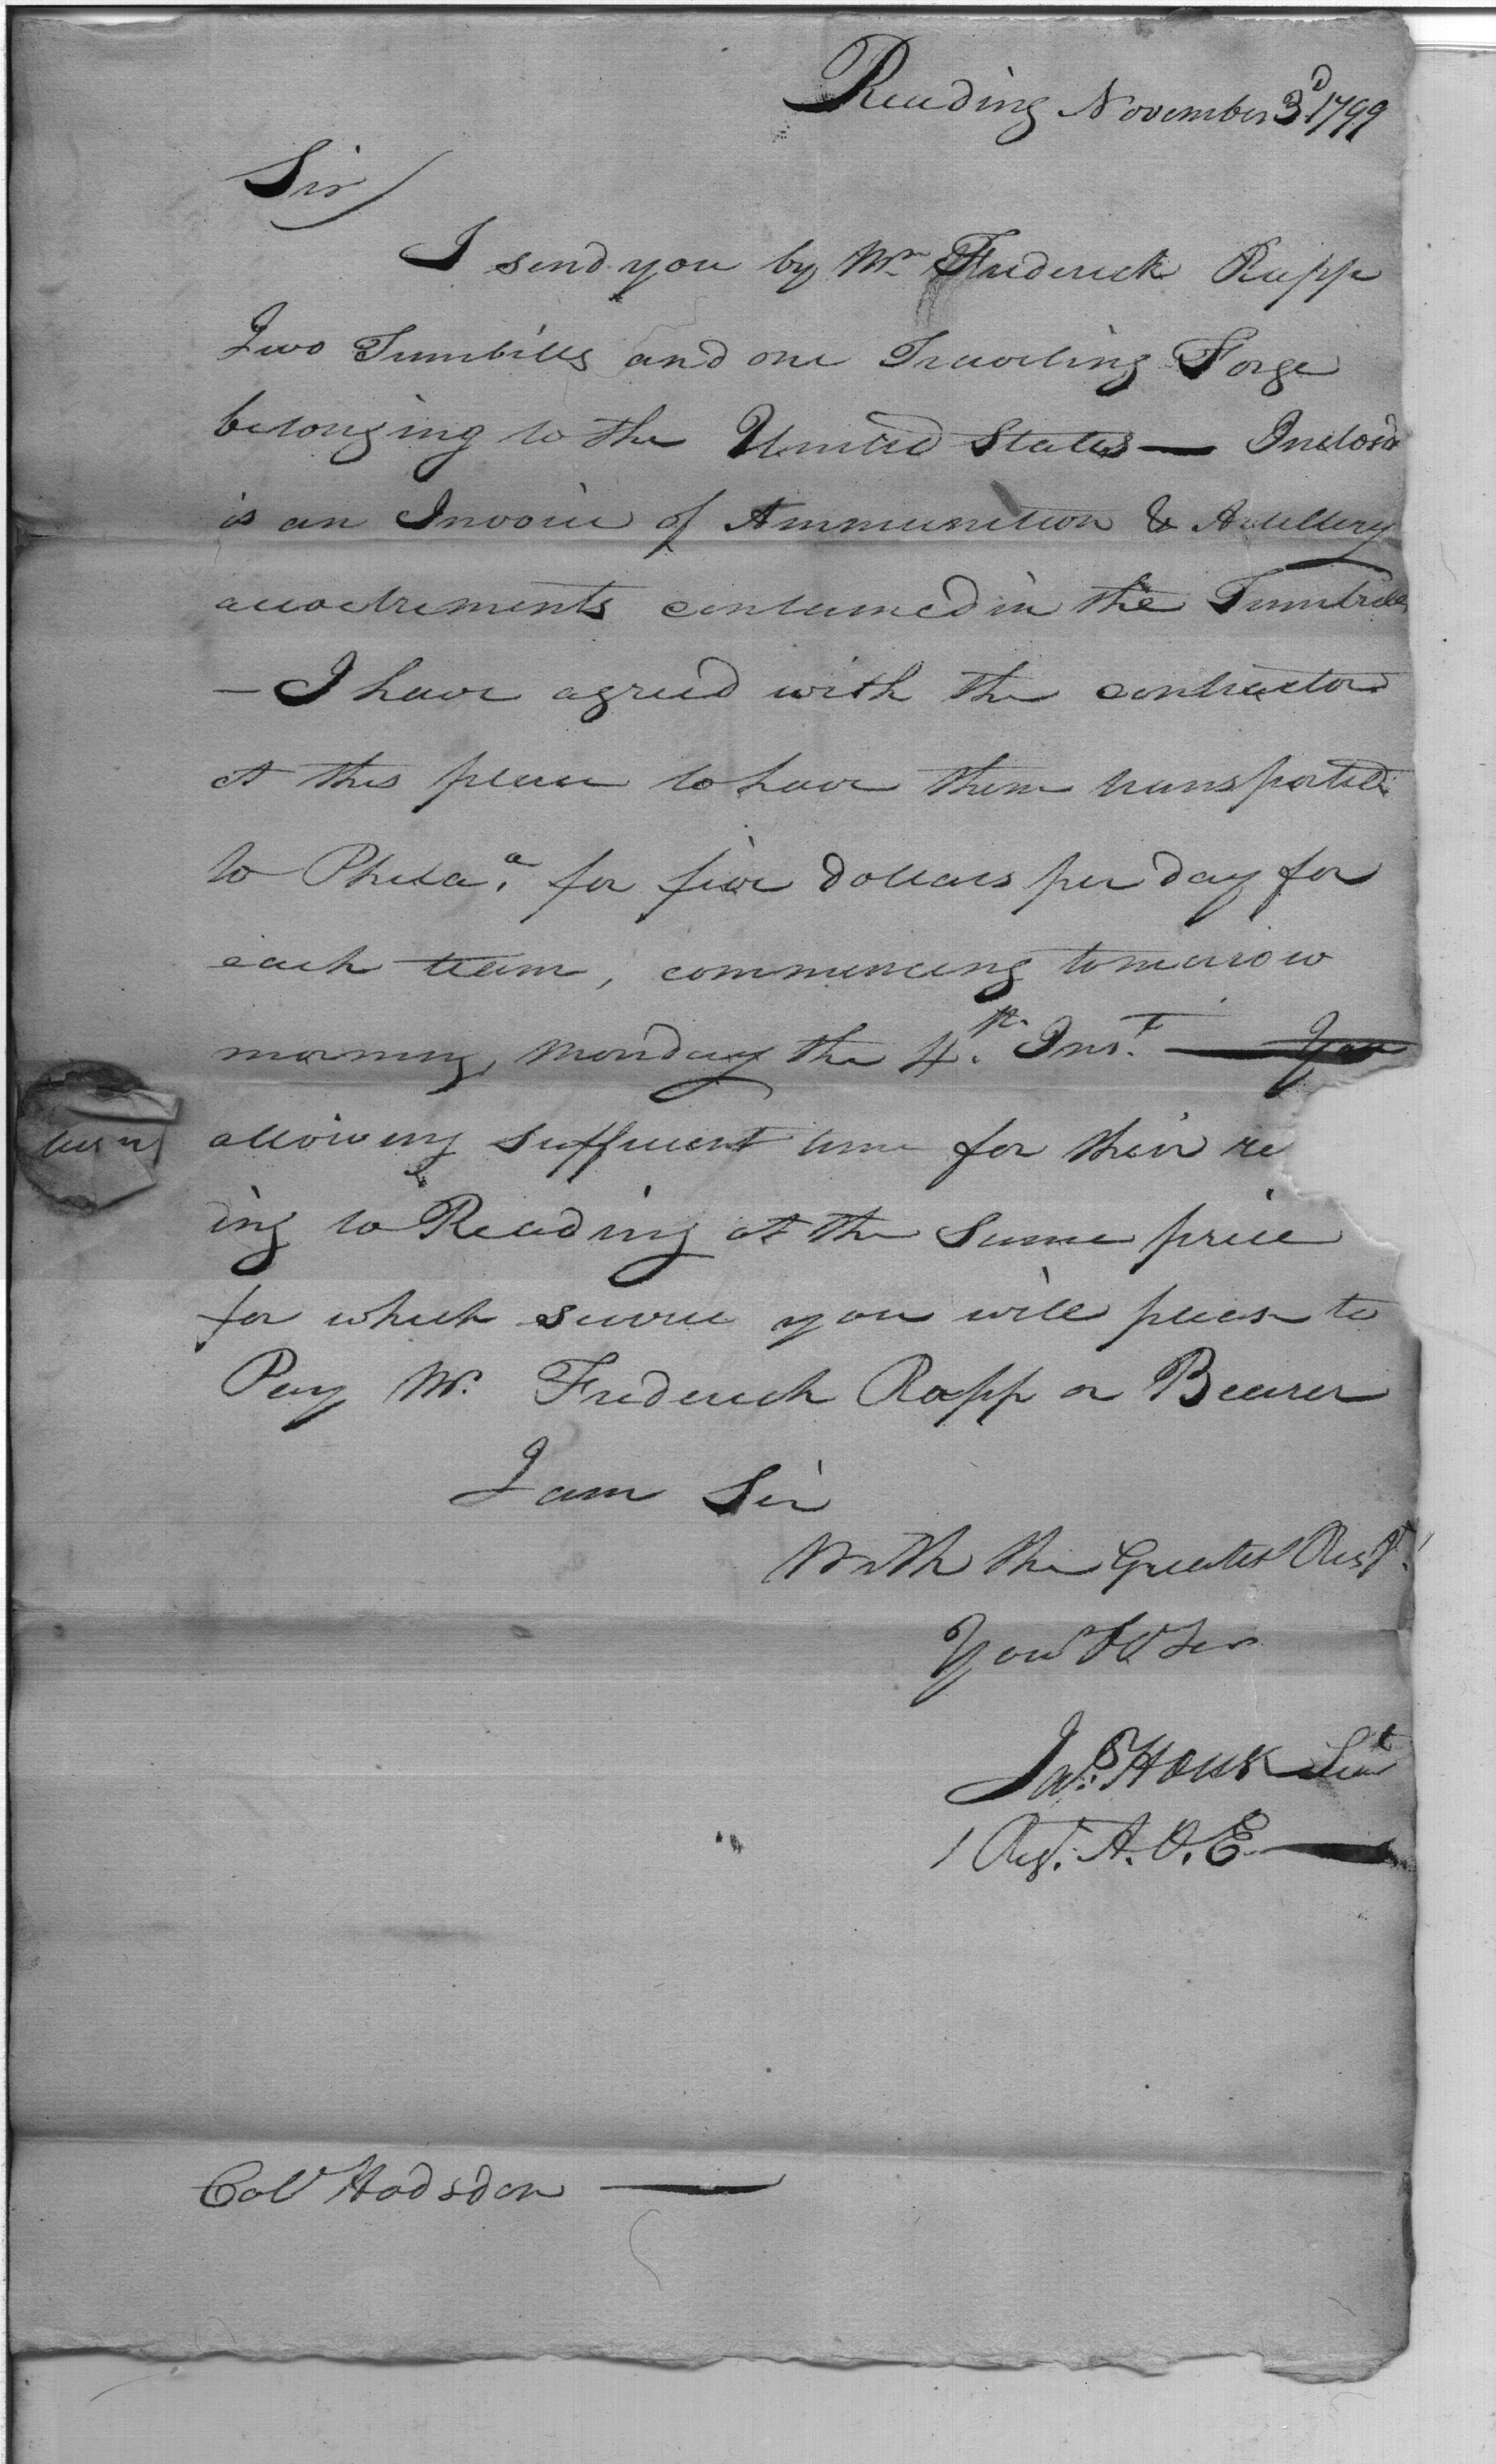 Reading November 3d 1799
Sir/
I send you by Mr Frederick Rapp
Two Tumbills and one Traveling Forge
belonging to the United States — Inclosd
is an Invoice of Ammunition & Artillery
accoctrements contained in the Tumbrills
— I have agreed with the contractor
at this place to have them transported
to Phila.a for five dollars per day for
each team, commencing tomorrow
morning, monday the 4.th Inst. —
allowing sufficient time for their re
turn
ing to Reading at the same price
for which service you will please to
Pay Mr. Frederick Rapp or Bearer
I am Sir
With the Greatest Rest.
Your Ob Ser
Jas. Housk Lieut
1 Regt. A. & E —
Colo Hodsdon —